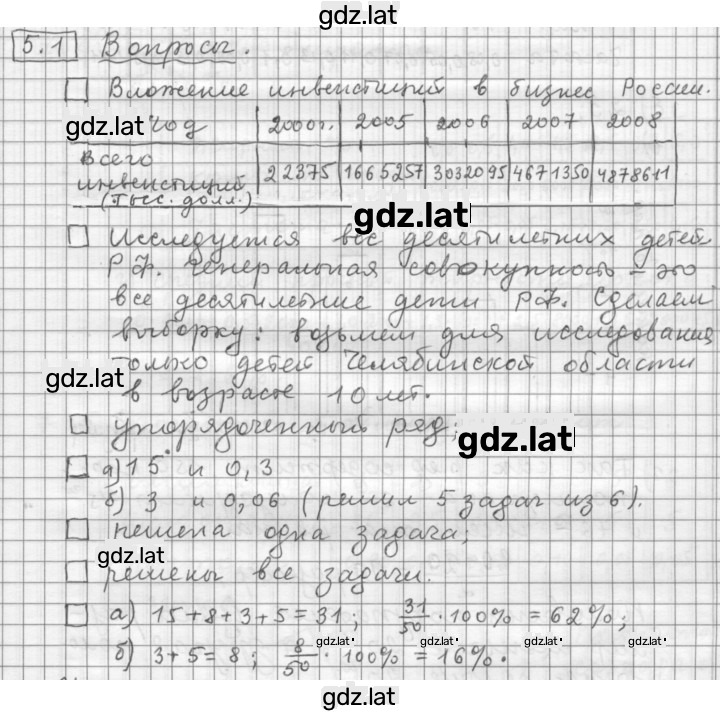 gdz.lat
5.1 Вопросы.
Вложение инвестиций в бизнес России.
gdz.lat год 2000г. 2005 2006 2007 2008
всего инвестиций (тыс. долл.) 22375 1665257 3032095 4671350 4878611
gdz.lat
Исследуется все десятилетних детей
РФ. Генеральная совокупность – это
все десятилетние дети РФ. Сделаем
выборку: возьмем для исследования
только детей Челябинской области
gdz.lat
в возрасте 10 лет.
упорядоченный ряд;
gdz.lat
а) 15 и 0,3
б) 3 и 0,06 (решил 5 задач из 6).
нешена одна задача;
gdz.lat
решены все задачи.
а) 15+8+3+5=31; 31/50 · 100% = 62%;
gdz.lat gdz.lat gdz.lat gdz.lat
б) 3+5=8; 8/50 · 100% = 16%.
gdz.lat